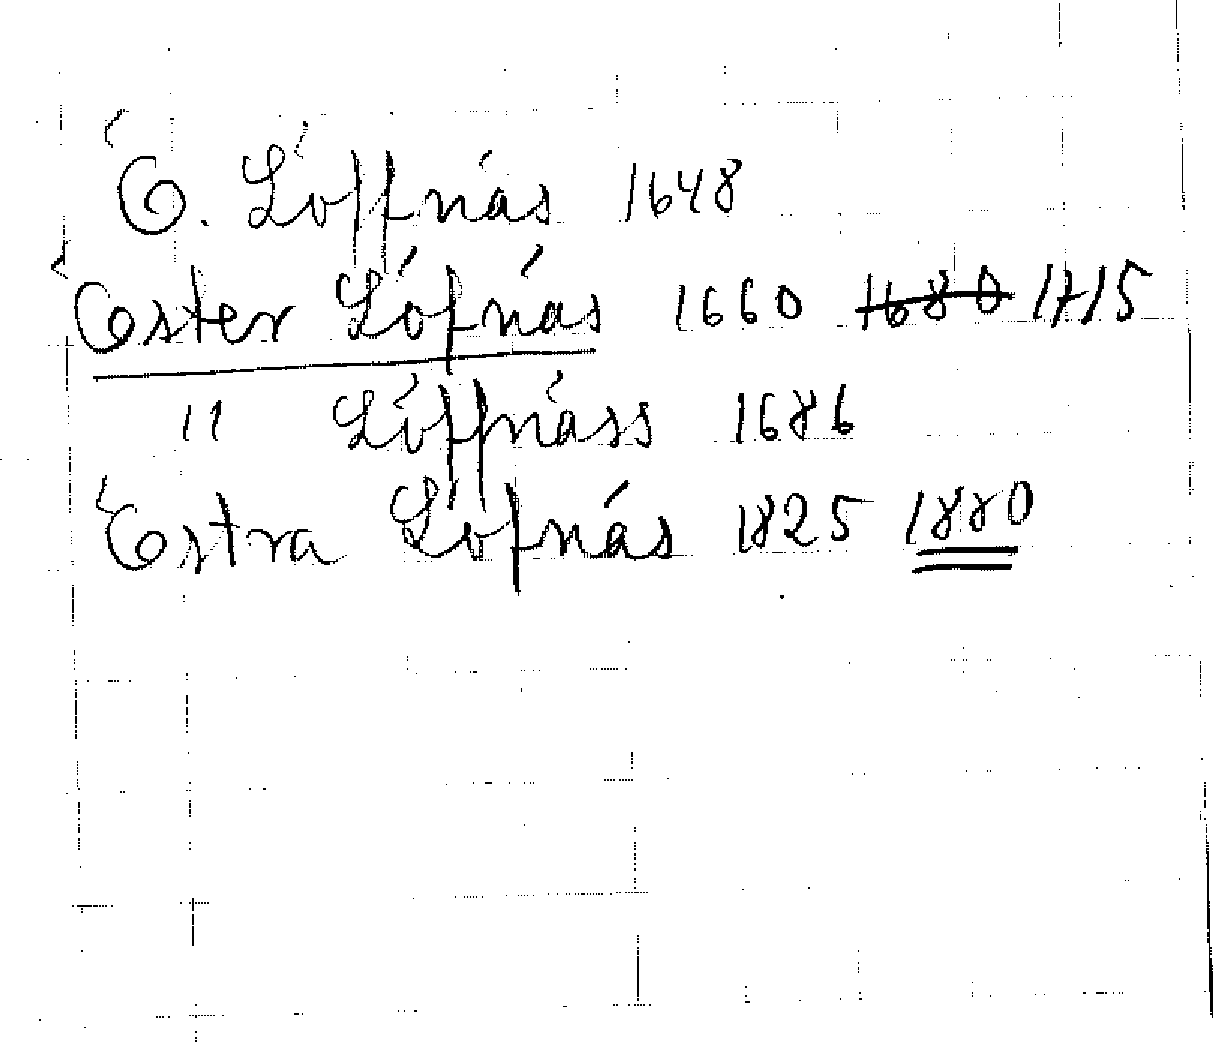 Ö. Löffnäs 1648
Öster Löfnäs 1660 1680 1715
" Löffnäss 1686
Östra Löfnäs 1825 1880